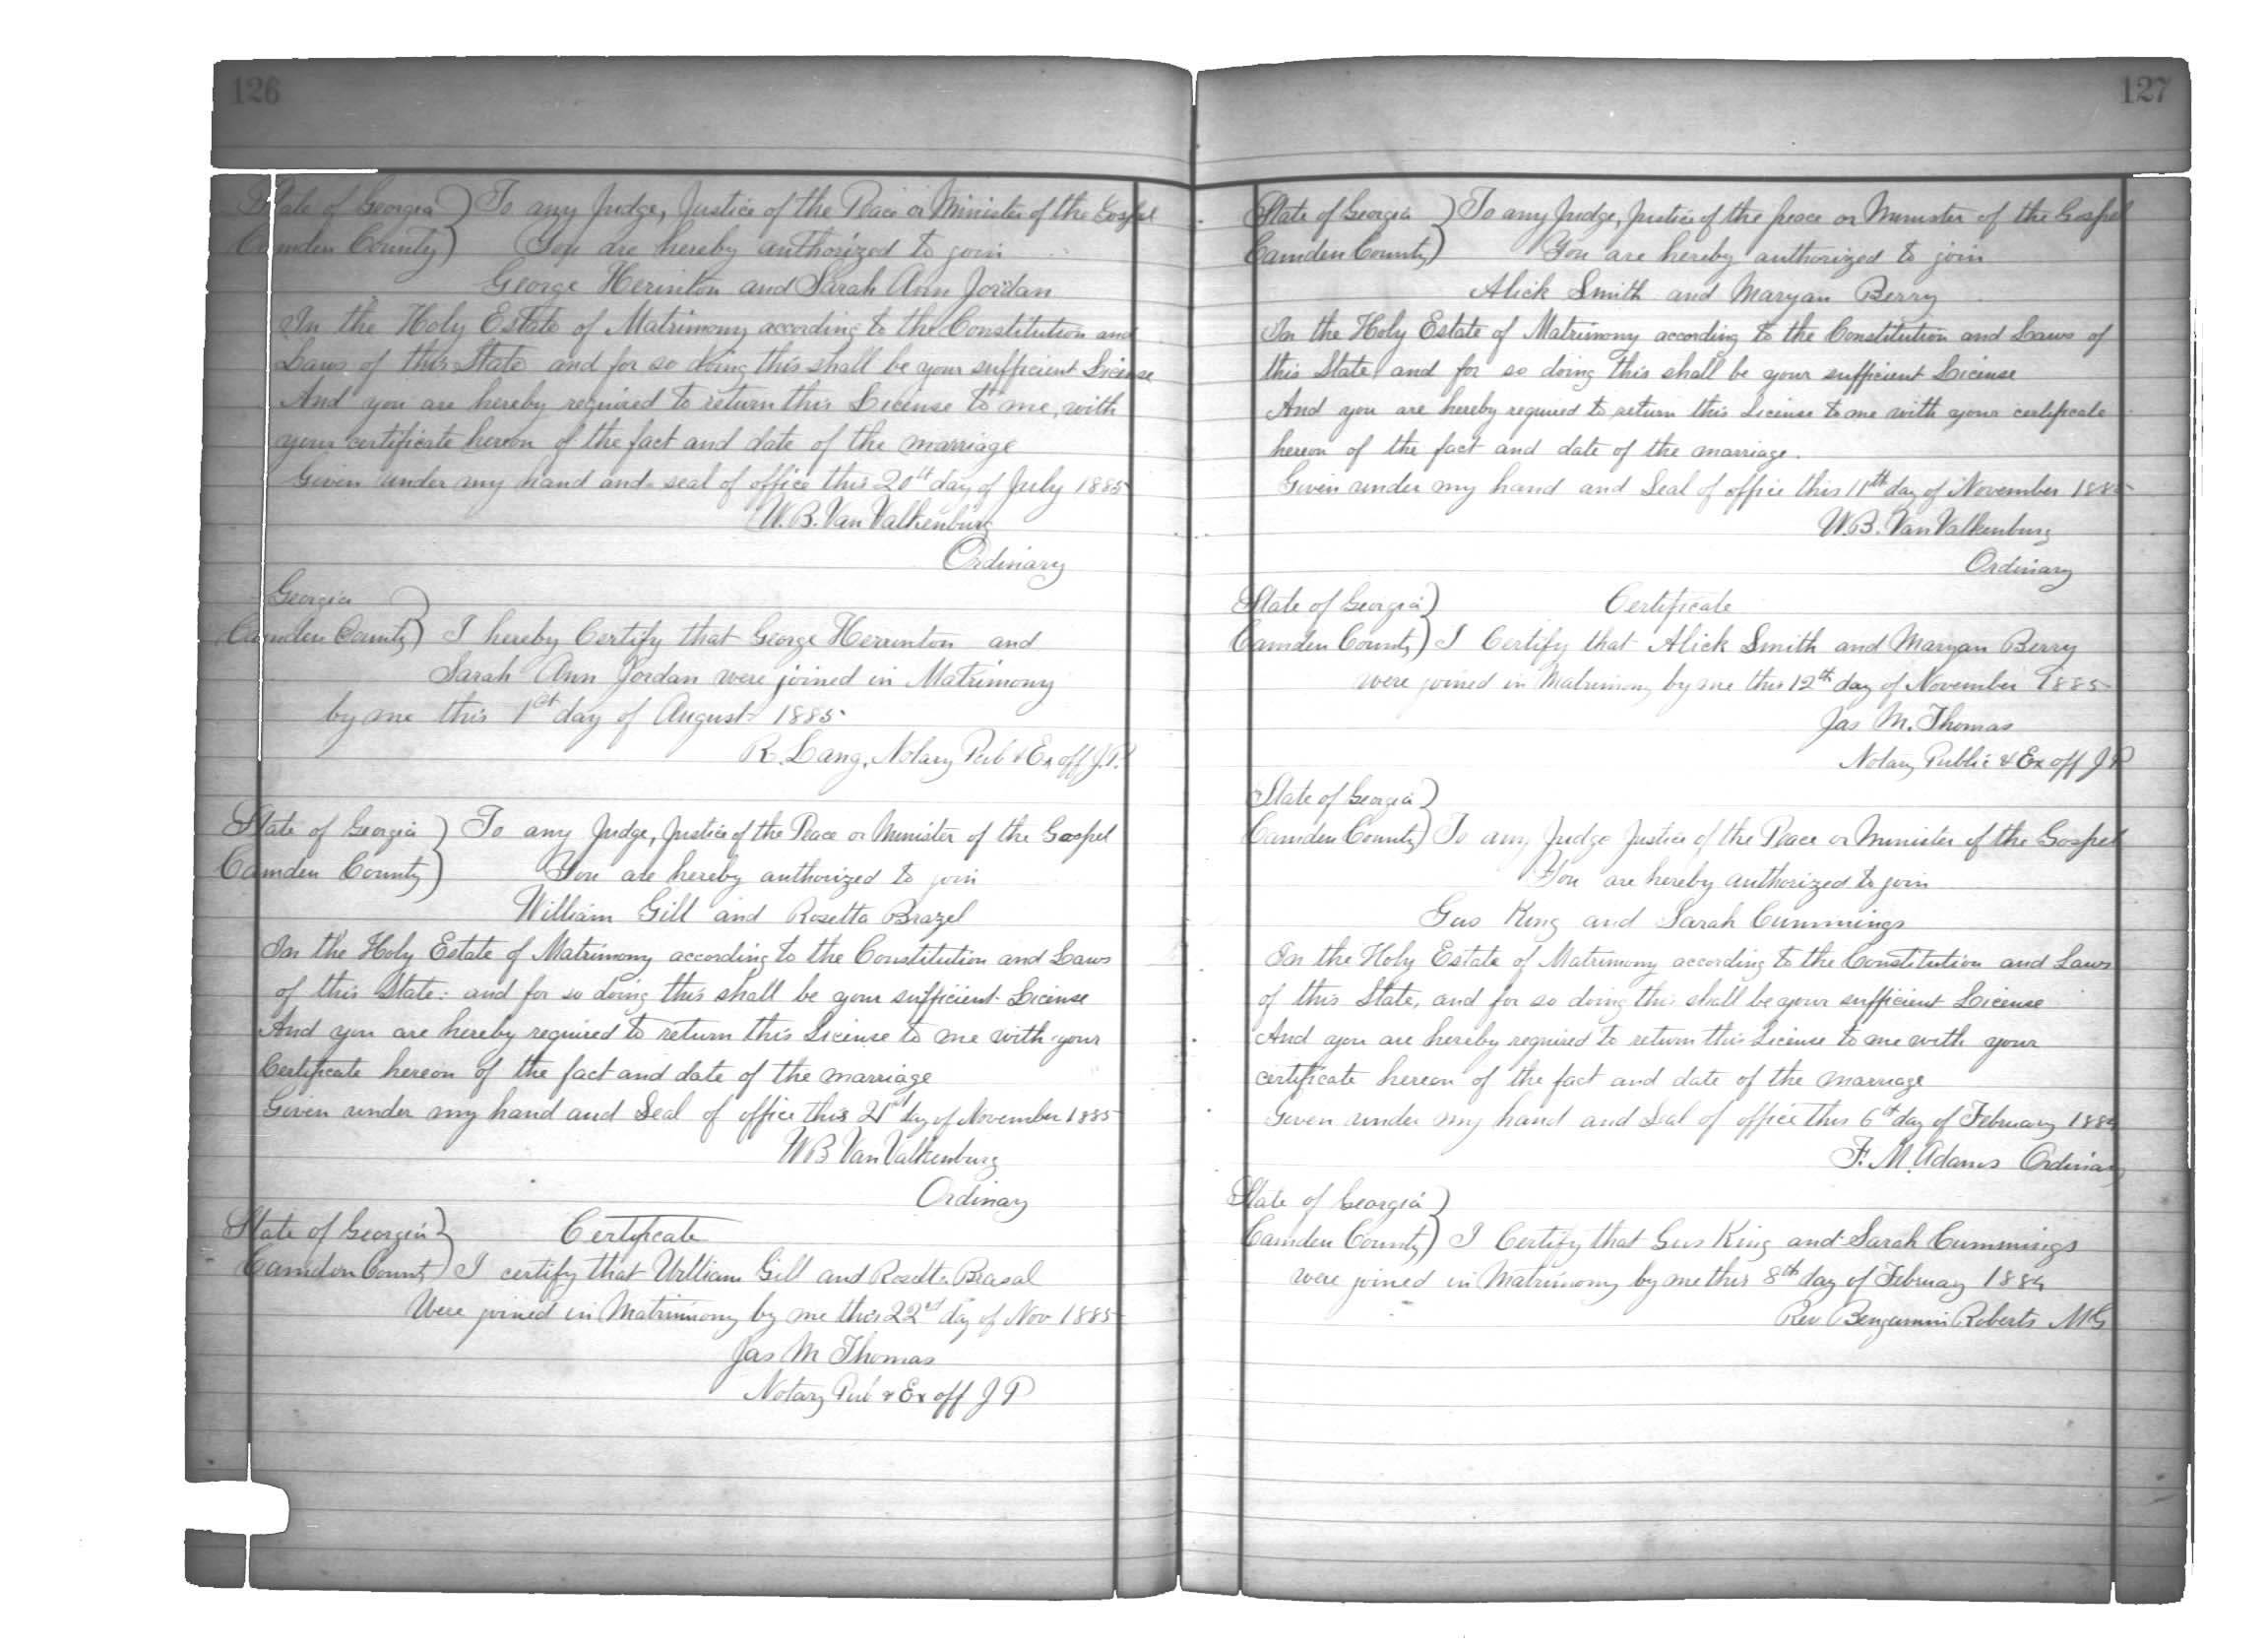 126
State of Georgia ) To any Judge, Justice of the Peace or Minister of the Gospel
Camden County ) You are hereby authorized to join
George Herinton and Sarah Ann Jordan
In the Holy Estate of Matrimony according to the Constitution and
Laws of this State and for so doing this shall be your sufficient License
And you are hereby required to return this License to me, with
your certificate hereon of the fact and date of the marriage
Given under my hand and seal of office this 20th day of July 1885
W. B. Van Valkenburg
Ordinary
Georgia )
Camden County ) I hereby Certify that George Herrinton and
Sarah Ann Jordan were joined in Matrimony
by me this 1st day of August 1885
R. Lang, Notary Pub & Ex off J.P.
State of Georgia ) To any Judge, Justice of the Peace or Minister of the Gospel
Camden County ) You are hereby authorized to join
William Gill and Rosetta Brazel
In the Holy Estate of Matrimony according to the Constitution and Laws
of this State: and for so doing this shall be your sufficient License
And you are hereby required to return this License to me with your
Certificate hereon of the fact and date of the marriage
Given under my hand and Seal of office this 21st day of November 1885
W B Van Valkenburg
Ordinary
State of Georgia ) Certificate
Camden County ) I certify that William Gill and Rosetta Brasal
Were joined in Matrimony by me this 22nd day of Nov 1885
Jas M Thomas
Notary Pub & Ex off J P
127
State of Georgia ) To any Judge, Justice of the peace or Minister of the Gospel
Camden County ) You are hereby authorized to join
Alick Smith and Maryan Berry
In the Holy Estate of Matrimony according to the Constitution and Laws of
this State and for so doing this shall be your sufficient License
And you are hereby required to return this License to me with your certificate
hereon of the fact and date of the marriage.
Given under my hand and Seal of office this 11th day of November 1885
W. B. Van Valkenburg
Ordinary
State of Georgia ) Certificate
Camden County ) I Certify that Alick Smith and Maryan Berry
were joined in Matrimony by me this 12th day of November 1885
Jas M. Thomas
Notary Public & Ex off J P
State of Georgia )
Camden County ) To any Judge Justice of the Peace or Minister of the Gospel
You are hereby authorized to join
Gus King and Sarah Cummings
In the Holy Estate of Matrimony according to the Constitution and Laws
of this State, and for so doing this shall be your sufficient License
And you are hereby required to return this License to me with your
certificate hereon of the fact and date of the marriage
Given under my hand and Seal of office this 6th day of February 1884
F. M. Adams Ordinary
State of Georgia )
Camden County ) I Certify that Gus King and Sarah Cummings
were joined in Matrimony by me this 8th day of February 1884
Rev Benjamin Roberts M G